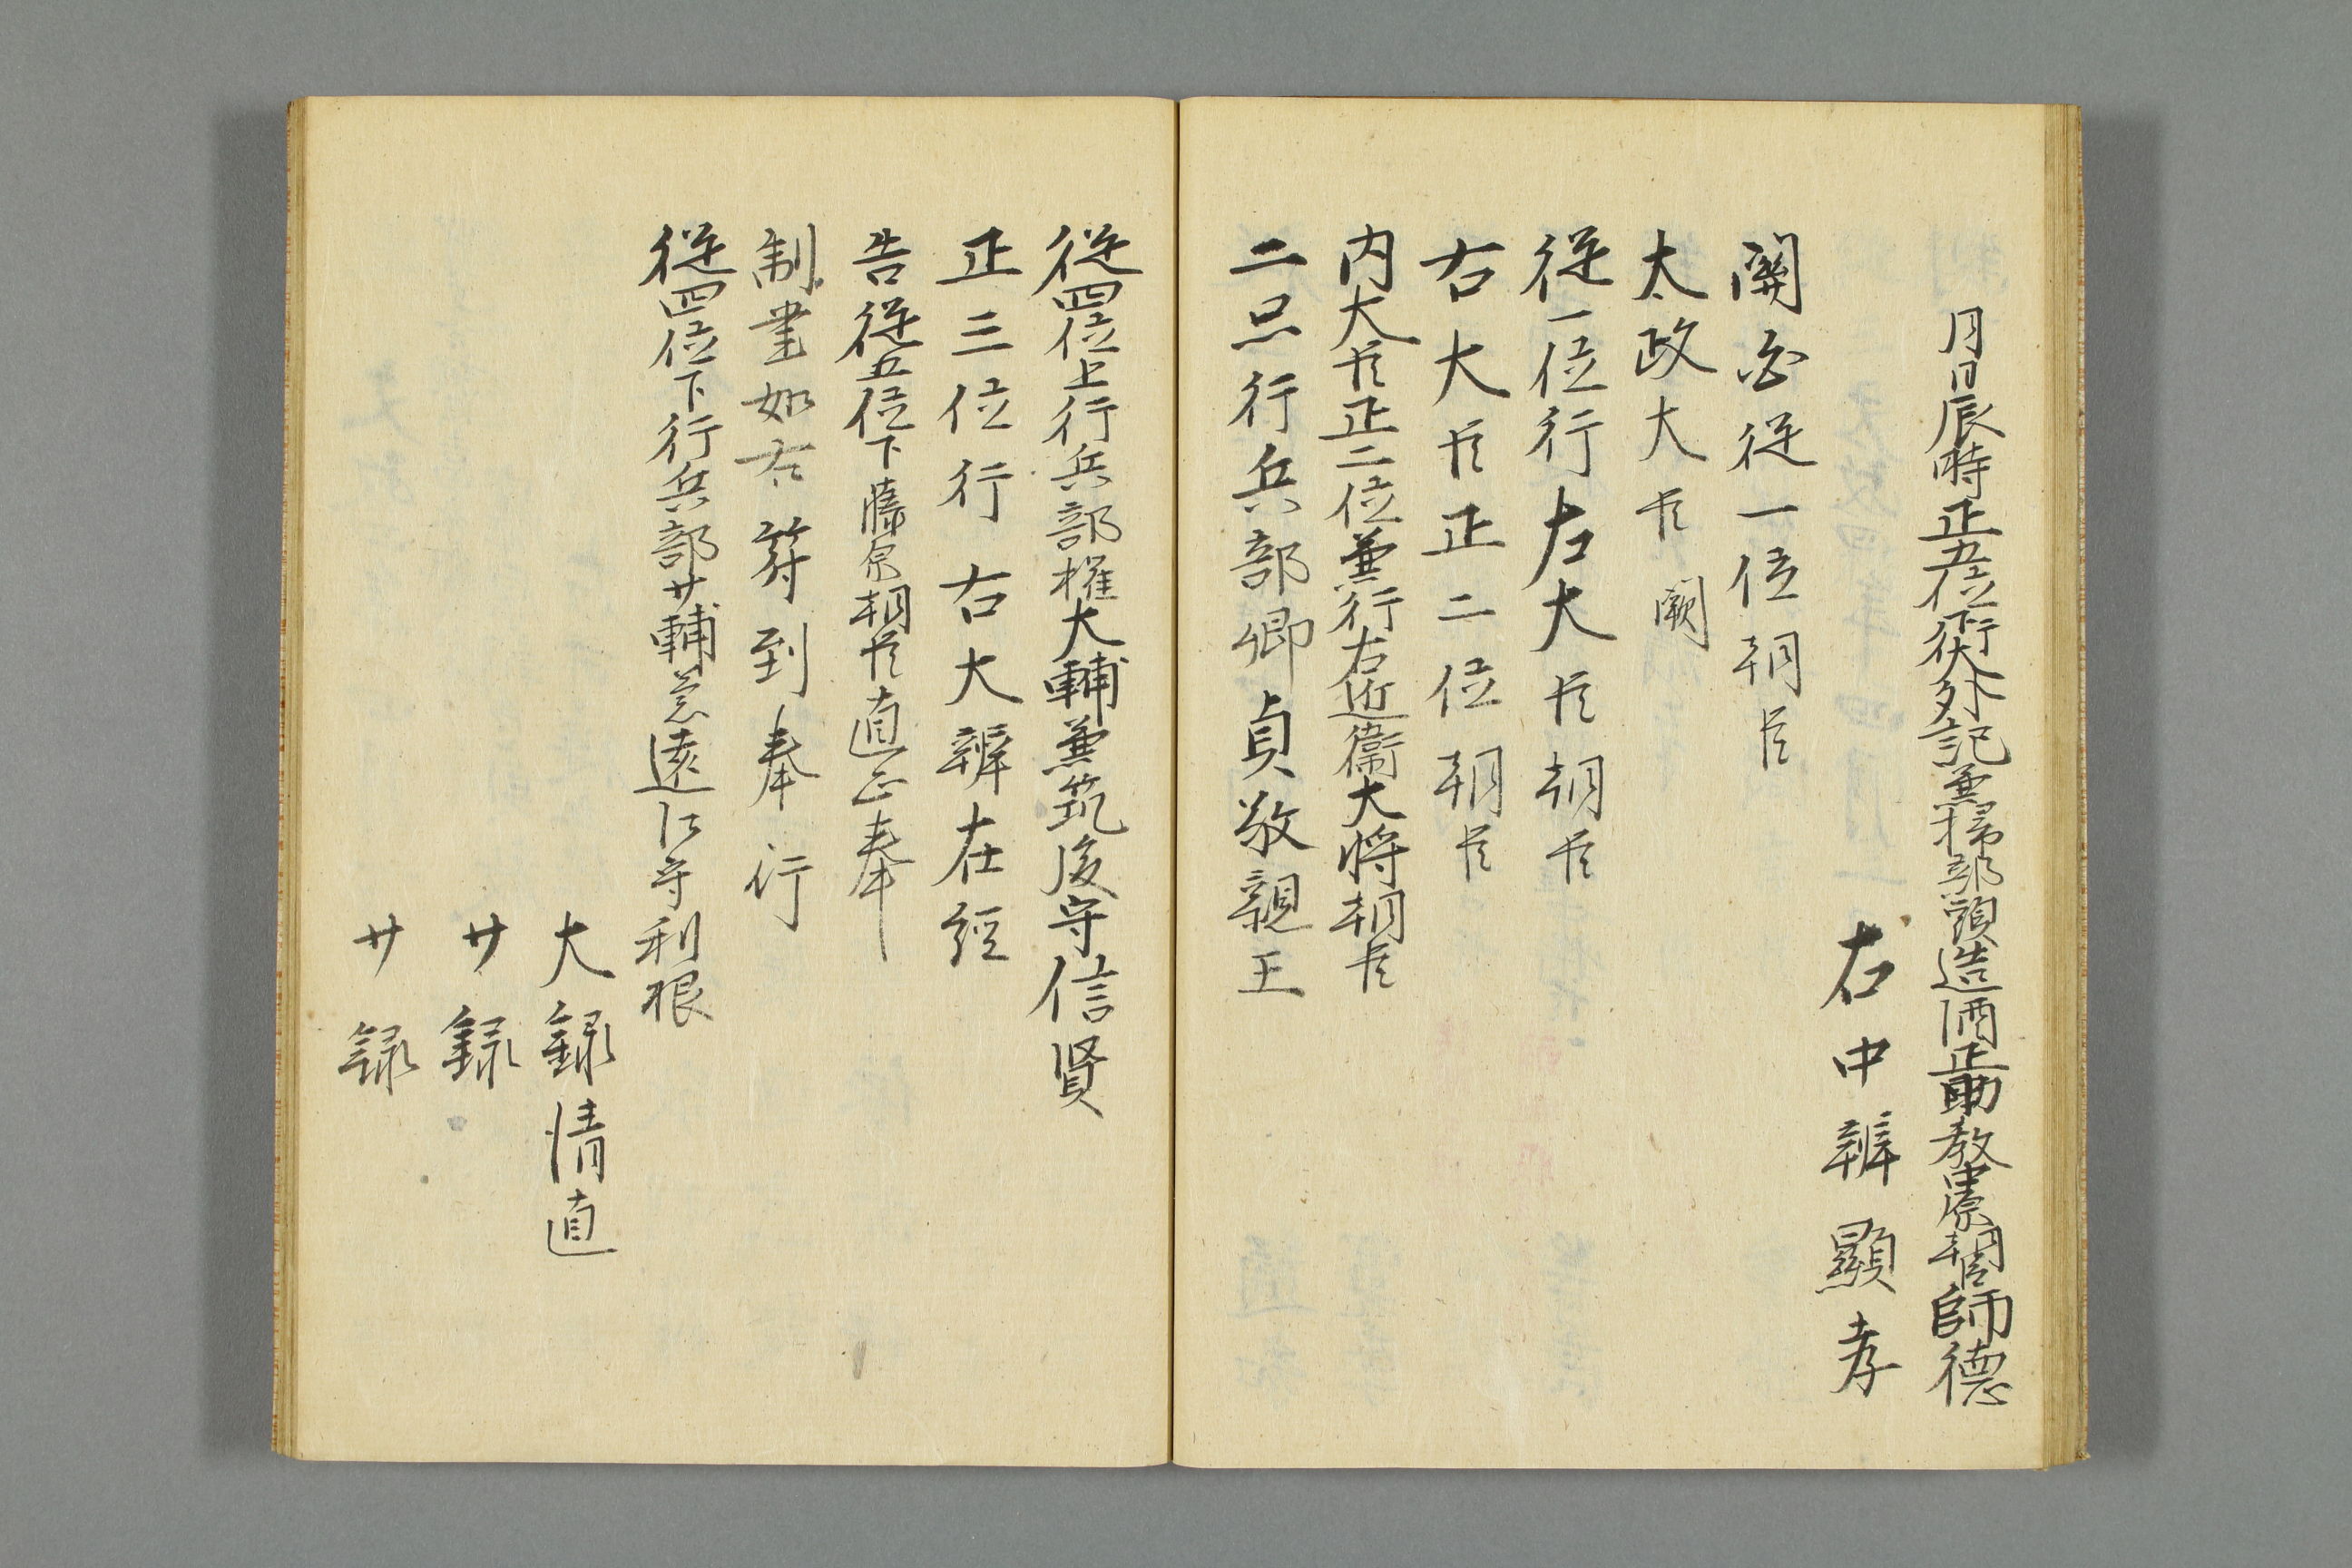 月日辰時正五位下行大外記兼掃部頭造酒正助教中原朝臣師德
右中辨顯孝
關白從一位朝臣
太政大臣闕
從一位行左大臣朝臣
右大臣正二位朝臣
内大臣正二位兼行右近衞大将朝臣
二品行兵部卿貞敬親王
從四位上行兵部權大輔兼筑後守信賢
正三位行右大辨在經
告從五位下藤原朝臣直正奉
制書如右符到奉行
從四位下行兵部少輔兼遠江守利根
大録情直
少録
少録